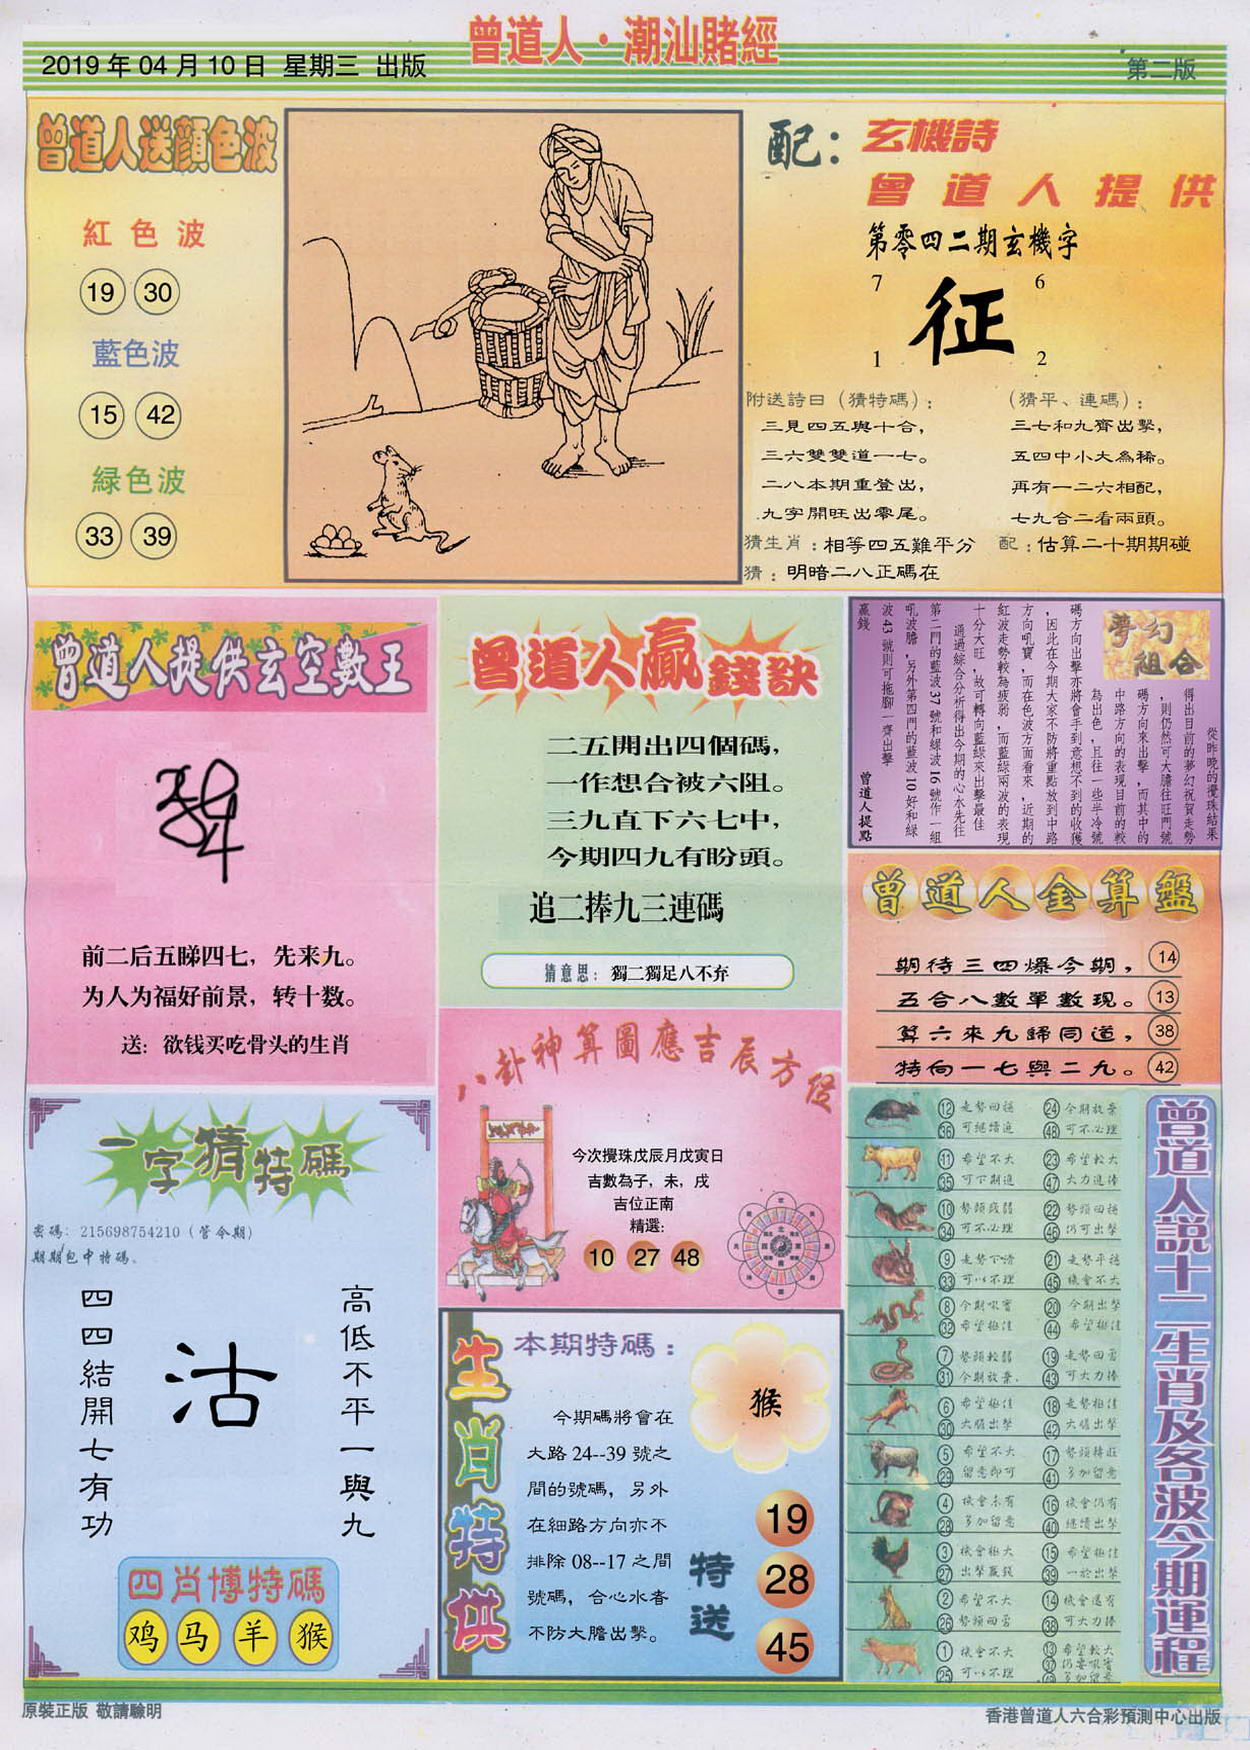 曾道人·潮汕賭經
2019 年 04 月 10 日 星期三 出版
第二版
曾道人送顔色波
紅色波
19 30
藍色波
15 42
緑色波
33 39
配：玄機詩
曾道人提供
第零四二期玄機字
7 6
征
1 2
附送詩曰（猜特碼）：
三見四五與十合，
三六雙雙道一七。
二八本期重登出，
九字開旺出零尾。
（猜平、連碼）：
三七和九齊出擊，
五四中小大為稀。
再有一二六相配，
七九合二看兩頭。
猜生肖：相等四五難平分
配：估算二十期期碰
猜：明暗二八正碼在
曾道人提供玄空數王
前二后五睇四七，先来九。
为人为福好前景，转十数。
送：欲钱买吃骨头的生肖
曾道人贏錢訣
二五開出四個碼，
一作想合被六阻。
三九直下六七中，
今期四九有盼頭。
追二捧九三連碼
猜意思：獨二獨足八不弃
夢幻
組合
從昨晚的攪珠結果
得出目前的夢幻祝賀走勢
，則仍然可大膽往旺門號
碼方向來出擊，而其中的
中路方向的表現目前的較
為出色，且往一些半冷號
碼方向出擊亦將會手到意想不到的收獲
，因此在今期大家不防將重點放到中路
方向吼寶，而在色波方面看來，近期的
紅波走勢較為疲弱，而藍綠兩波的表現
十分大旺，故可轉向藍綠來出擊最佳
通過綜合分析得出今期的心水先往
第二門的藍波37號和綠波16號作一組
吼波膽，另外第四門的藍波10好和綠
波43號則可拖腳一齊出擊
贏錢
曾道人提點
曾道人金算盤
期待三四爆今期， 14
五合八數單數現。 13
算六來九歸同道， 38
特向一七與二九。 42
八卦神算圖應吉辰方位
今次攪珠戊辰月戊寅日
吉數為子，未，戌
吉位正南
精選：
10 27 48
一字猜特碼
密碼：215698754210（管今期）
期期包中特碼。
高低不平一與九
沽
四四結開七有功
四肖博特碼
鸡 马 羊 猴
生肖特供
本期特碼：
猴
今期碼將會在
大路 24--39 號之
間的號碼，另外
在細路方向亦不
排除 08--17 之間
號碼，合心水者
不防大膽出擊。
特送
19
28
45
曾道人說十二生肖及各波今期運程
12 走勢回穩 24 今期放棄
36 可繼續追 48 可不必理
11 希望不大 23 希望較大
35 可下期追 47 大力追捧
10 勢頭疲弱 22 勢頭回穩
34 可不必理 46 仍可出擊
9 走勢下滑 21 走勢平穩
33 可以不理 45 機會不大
8 今期吼寶 20 今期出擊
32 希望極佳 44 希望極佳
7 勢頭較弱 19 走勢回勇
31 今期放棄. 43 可大力捧
6 希望極佳 18 走勢極佳
30 大膽出擊 42 大膽出擊
5 希望不大 17 勢頭轉旺
29 留意即可 41 多加留意
4 機會未有 16 機會仍有
28 多加留意 40 繼續出擊
3 機會極大 15 希望極佳
27 出擊贏錢 39 一於出擊
2 希望不大 14 機會還有
26 勢頭回勇 38 可大力捧
1 機會不大 13 希望較大
25 可以不理 37 仍要吼實
49 多加留意
原裝正版 敬請驗明
香港曾道人六合彩預測中心出版